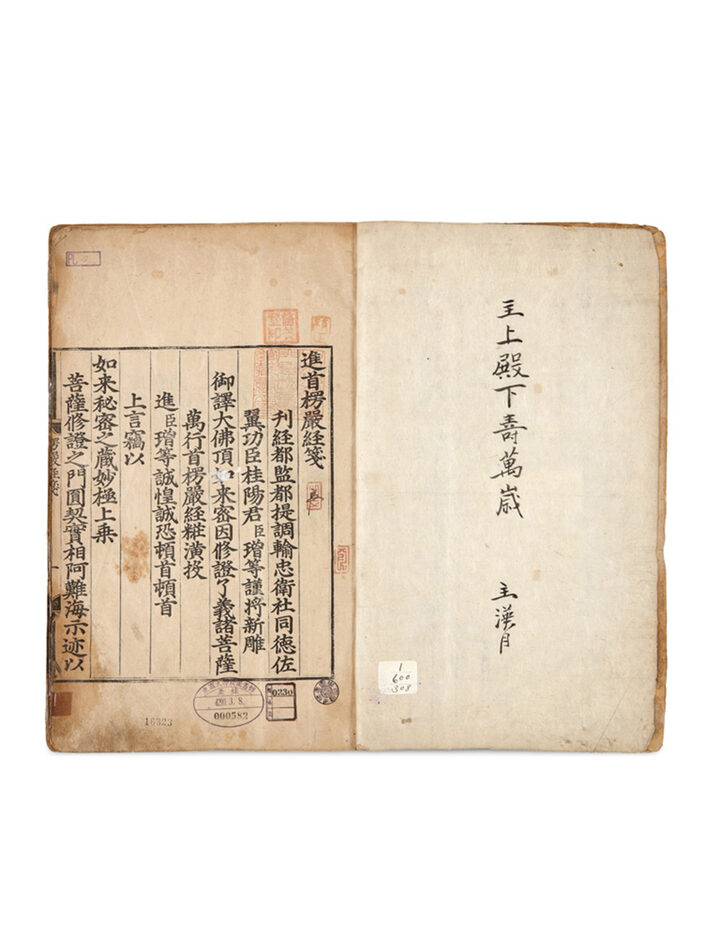 主上殿下壽萬歲
主漢月
1
600
308
進首楞嚴經箋
刊經都監都提調輸忠衛社同德佐
翼功臣桂陽君臣璔等謹將新雕
御譯大佛頂如來密因修證了義諸菩薩
萬行首楞嚴經糚潢投
進臣璔等誠惶誠恐頓首頓首
上言竊以
如来秘密之藏妙極上乗
菩薩修證之門圓契實相阿難海示迹以
楞嚴經箋
一
0230
4290.3.8.
000582
16323